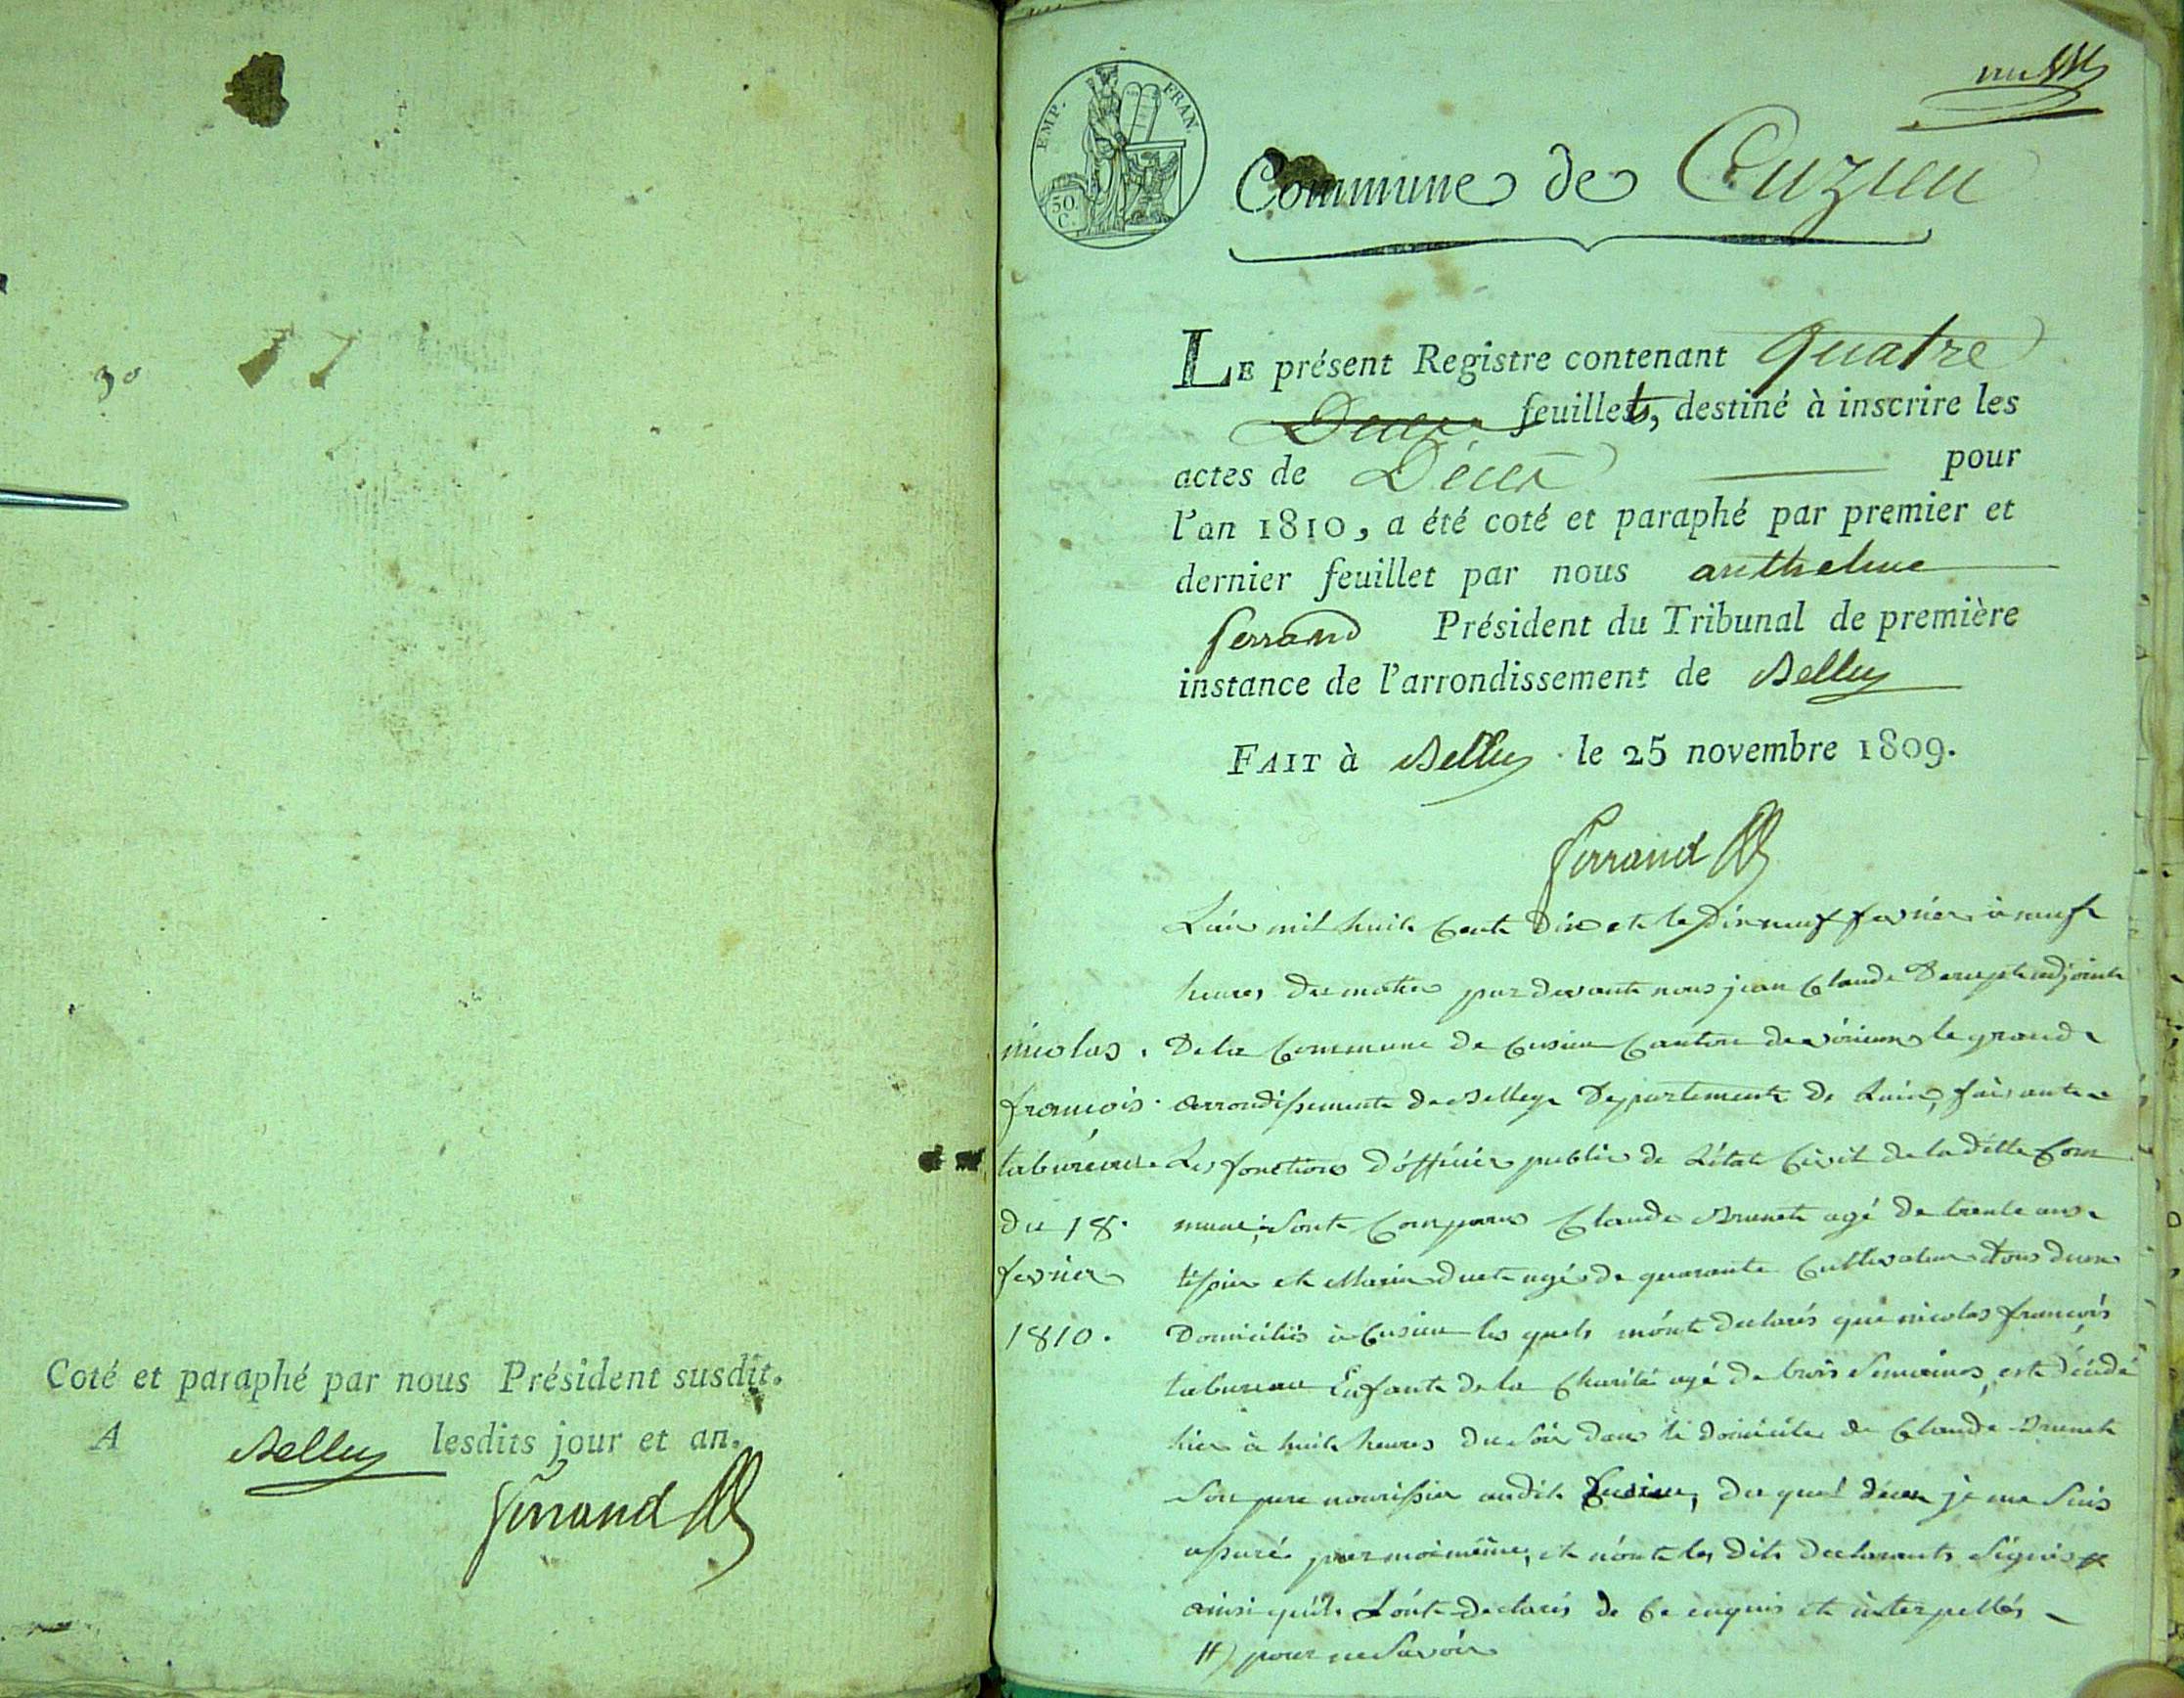 30
Coté et paraphé par nous Président susdit.
A Belley lesdits jour et an.
Ferrand
EMP. FRAN.
50 C.
Commune de Cuzieu
LE présent Registre contenant quatre
feuillets, destiné à inscrire les
actes de Décès pour
l'an 1810, a été coté et paraphé par premier et
dernier feuillet par nous anthelme
ferrand Président du Tribunal de première
instance de l'arrondissement de Belley
FAIT à Belley le 25 novembre 1809.
Ferrand
nicolas
françois
tabureau
du 18
fevrier
1810.
L'an mil huit Cent Dix et le Dix neuf fevrier à neuf
heures du matin par devant nous jean Claude adjoint
De la Commune de Cusieu Canton de virieux le grand
arrondissement de Belley Departement de Lain, faisant
Les fonctions d'officier public de L'état Civil de la ditte Com
mune, Sont Comparus Claude Brunet agé de trente ans
tissier et Marin duet agé de quarante Cultivateur tous deux
Domiciliés à Cusieu les quels m'ont declarés que nicolas françois
tabureau Enfant de la Charité agé de trois Semaines, est décédé
hier à huit heures du Soir dans le domicile de Claude Brunet
Son pere nourissier audit Cusieu, du quel décès je me Suis
assuré par moi même, et n'ont les dits declarants Signés #
ainsi qu'ils L'ont declarés de Ce enquis et interpellés
#) pour ne Savoir